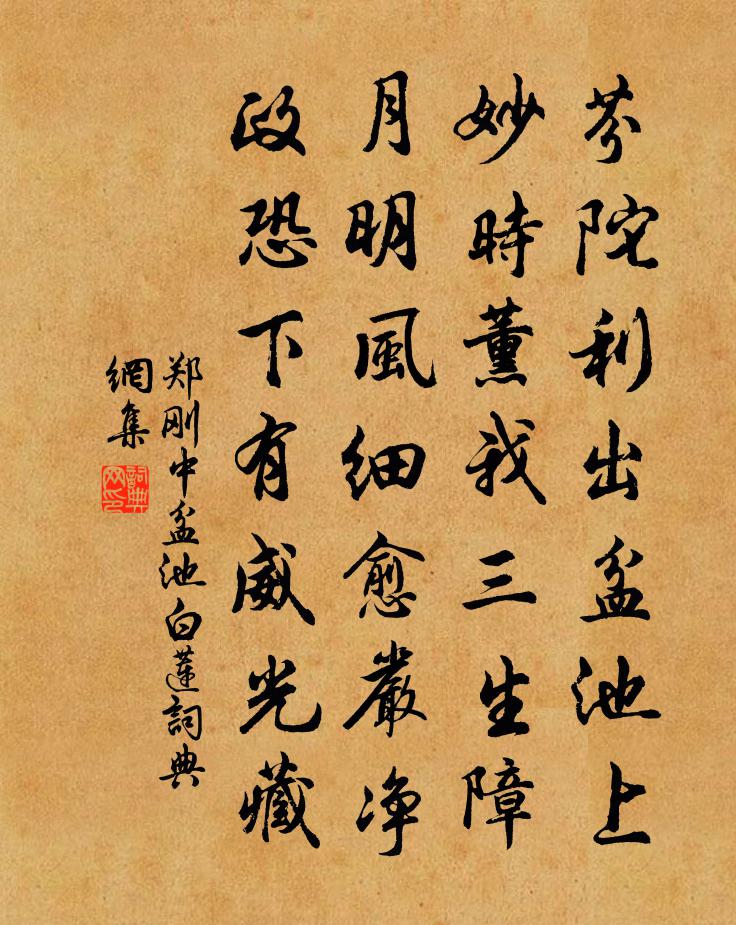 芬陀利出盆池上
妙時薰我三生障
月明風细愈嚴净
政恐下有威光藏
郑刚中盆池白蓮詞典
網集
詞典
网印